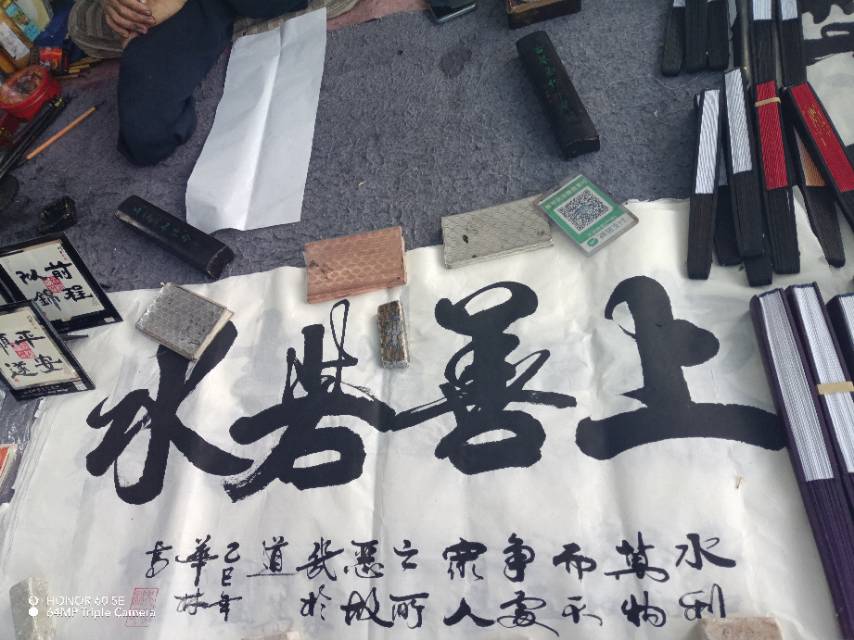 上善若水
水利
萬物
而不
争處
衆人
之所
惡故
幾於
道
乙巳年
華林
书
前程
似錦
平安
順遂
HONOR 60 SE
64MP Triple Camera